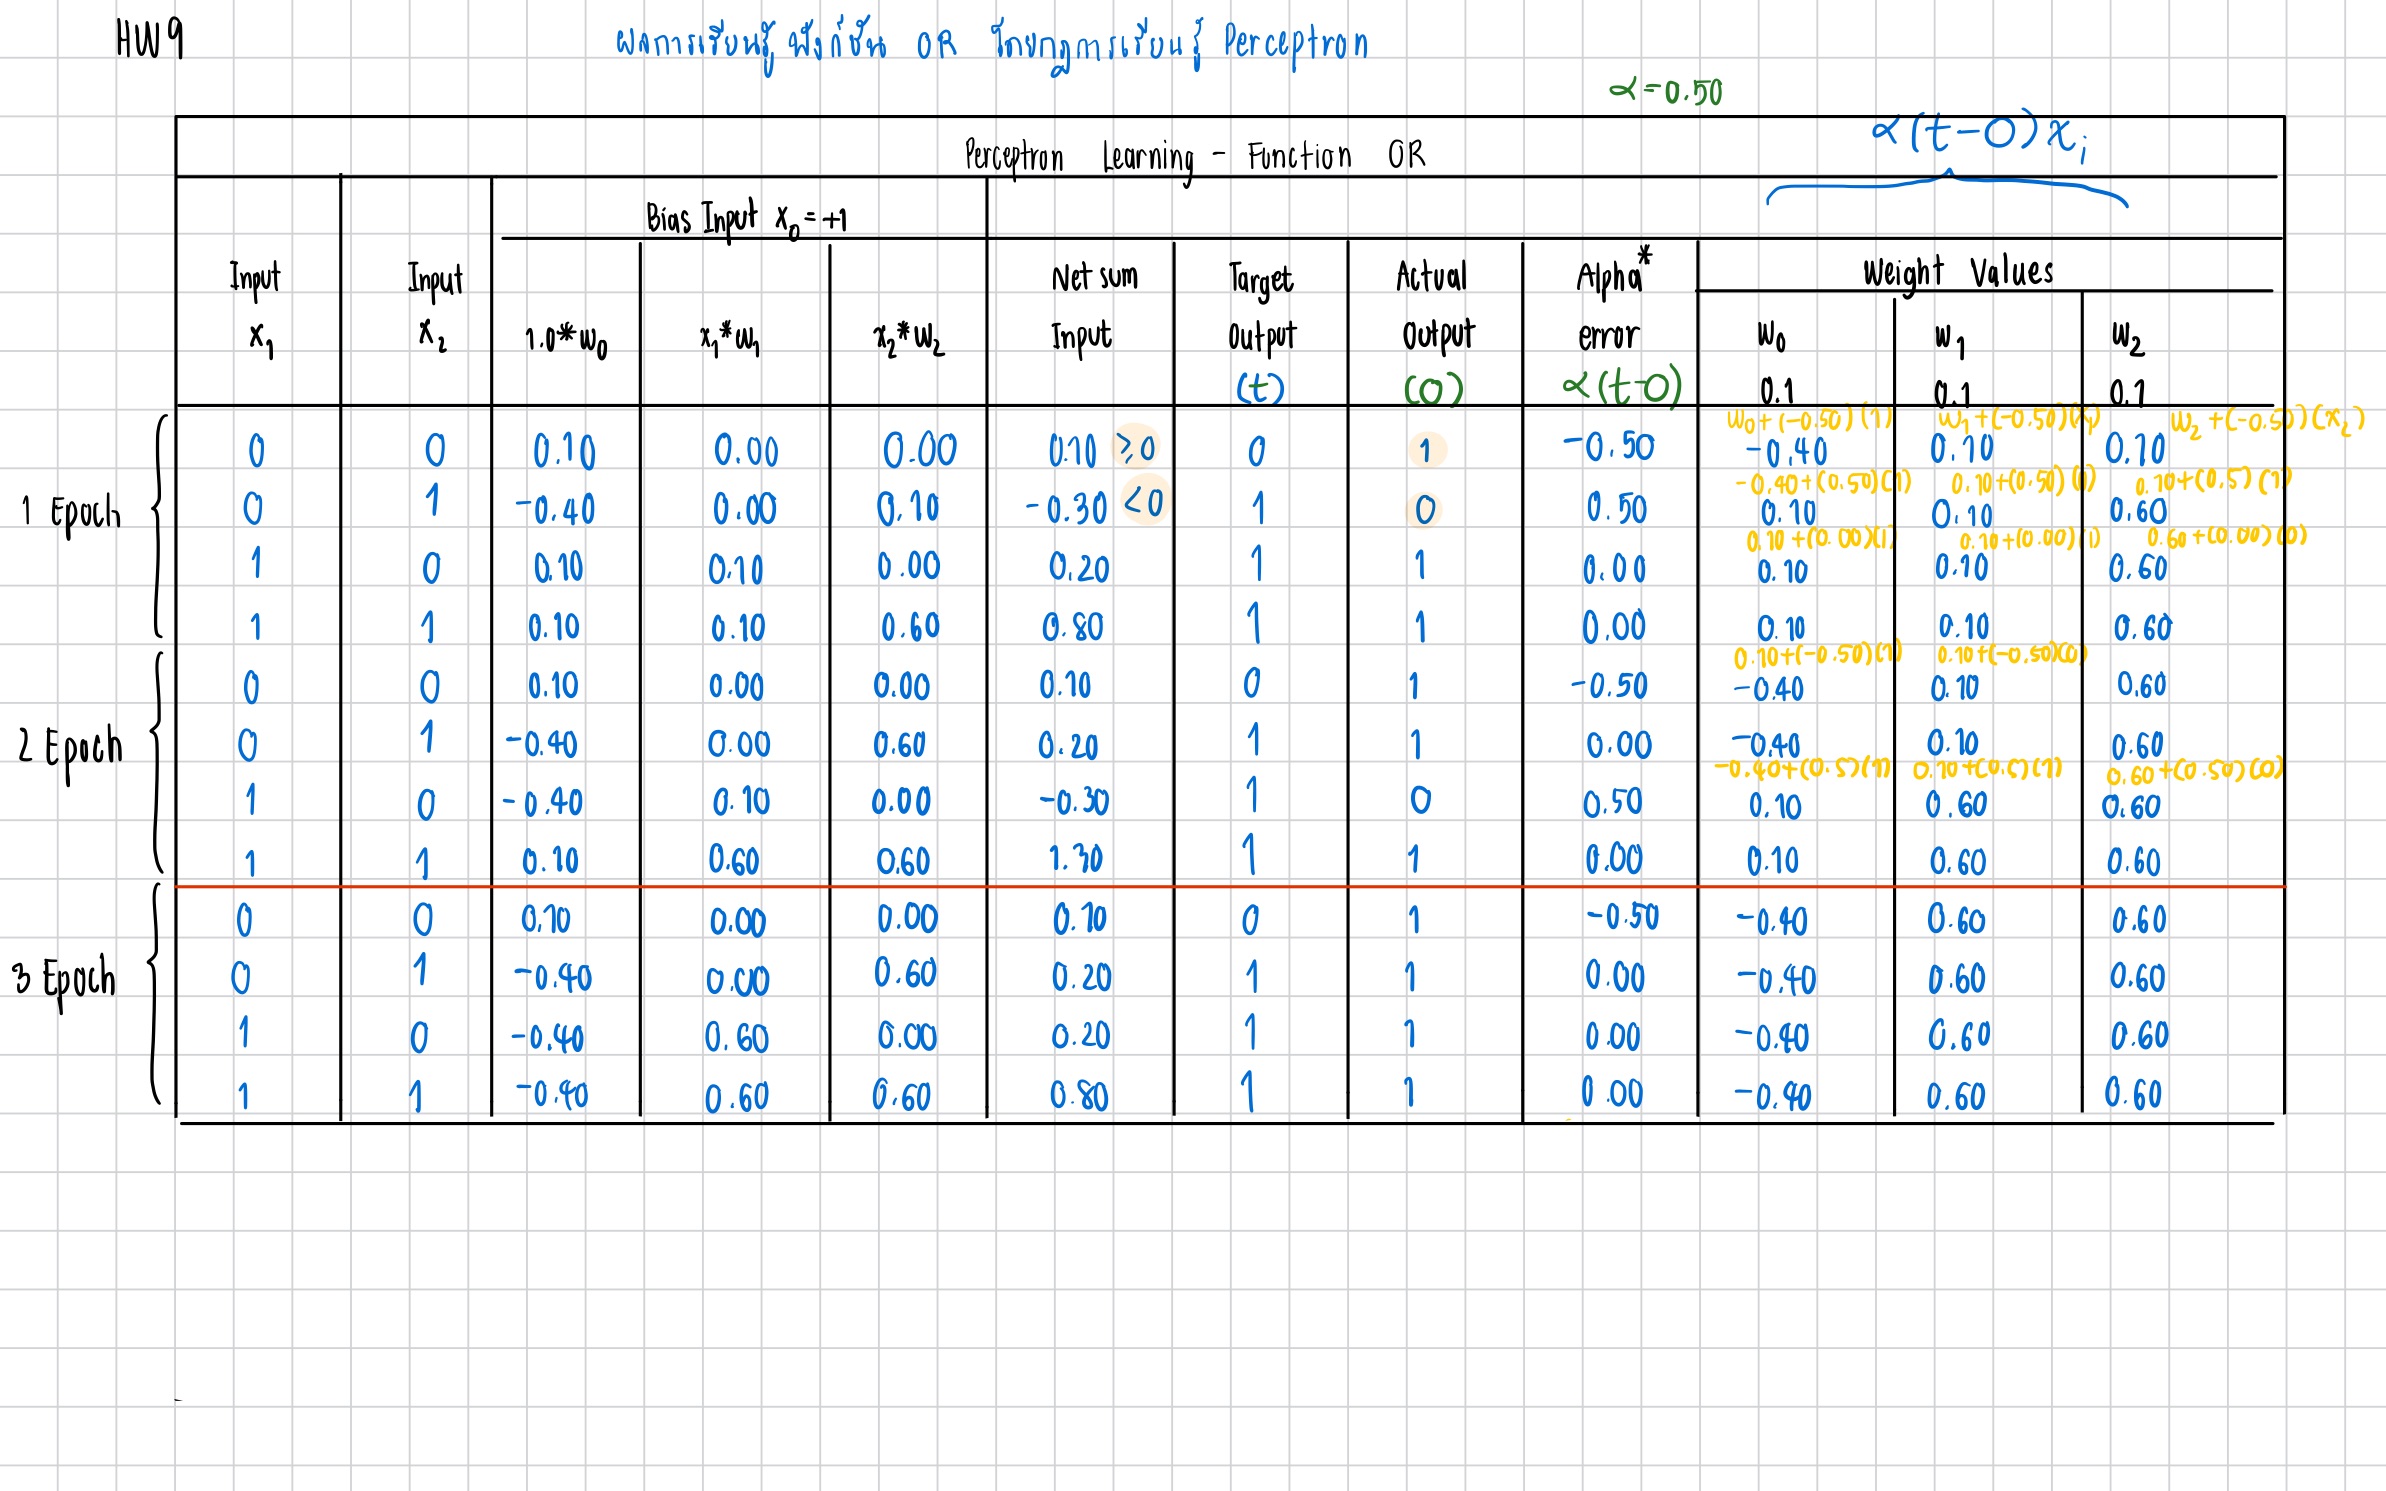 HW9
ผลการเรียนรู้ ฟังก์ชัน OR โดยกฎการเรียนรู้ Perceptron
α=0.50
Perceptron Learning - Function OR
α(t-0)xi
Bias Input x0 = +1
Input x1 Input x2 1.0*w0 x1*w1 x2*w2 Net sum Input Target Output (t) Actual Output (0) Alpha* error α(t-0) Weight Values
w0 w1 w2
0.1 0.1 0.1
w0+(-0.50)(1) w1+(-0.50)(x1) w2+(-0.50)(x2)
1 Epoch
0 0 0.10 0.00 0.00 0.10 ≥0 0 1 -0.50 -0.40 0.10 0.10
-0.40+(0.50)(1) 0.10+(0.50)(0) 0.10+(0.5)(1)
0 1 -0.40 0.00 0.10 -0.30 <0 1 0 0.50 0.10 0.10 0.60
0.10+(0.00)(1) 0.10+(0.00)(1) 0.60+(0.00)(0)
1 0 0.10 0.10 0.00 0.20 1 1 0.00 0.10 0.10 0.60
1 1 0.10 0.10 0.60 0.80 1 1 0.00 0.10 0.10 0.60
0.10+(-0.50)(1) 0.10+(-0.50)(0)
2 Epoch
0 0 0.10 0.00 0.00 0.10 0 1 -0.50 -0.40 0.10 0.60
0 1 -0.40 0.00 0.60 0.20 1 1 0.00 -0.40 0.10 0.60
-0.40+(0.5)(1) 0.10+(0.5)(1) 0.60+(0.50)(0)
1 0 -0.40 0.10 0.00 -0.30 1 0 0.50 0.10 0.60 0.60
1 1 0.10 0.60 0.60 1.30 1 1 0.00 0.10 0.60 0.60
3 Epoch
0 0 0.10 0.00 0.00 0.10 0 1 -0.50 -0.40 0.60 0.60
0 1 -0.40 0.00 0.60 0.20 1 1 0.00 -0.40 0.60 0.60
1 0 -0.40 0.60 0.00 0.20 1 1 0.00 -0.40 0.60 0.60
1 1 -0.40 0.60 0.60 0.80 1 1 0.00 -0.40 0.60 0.60